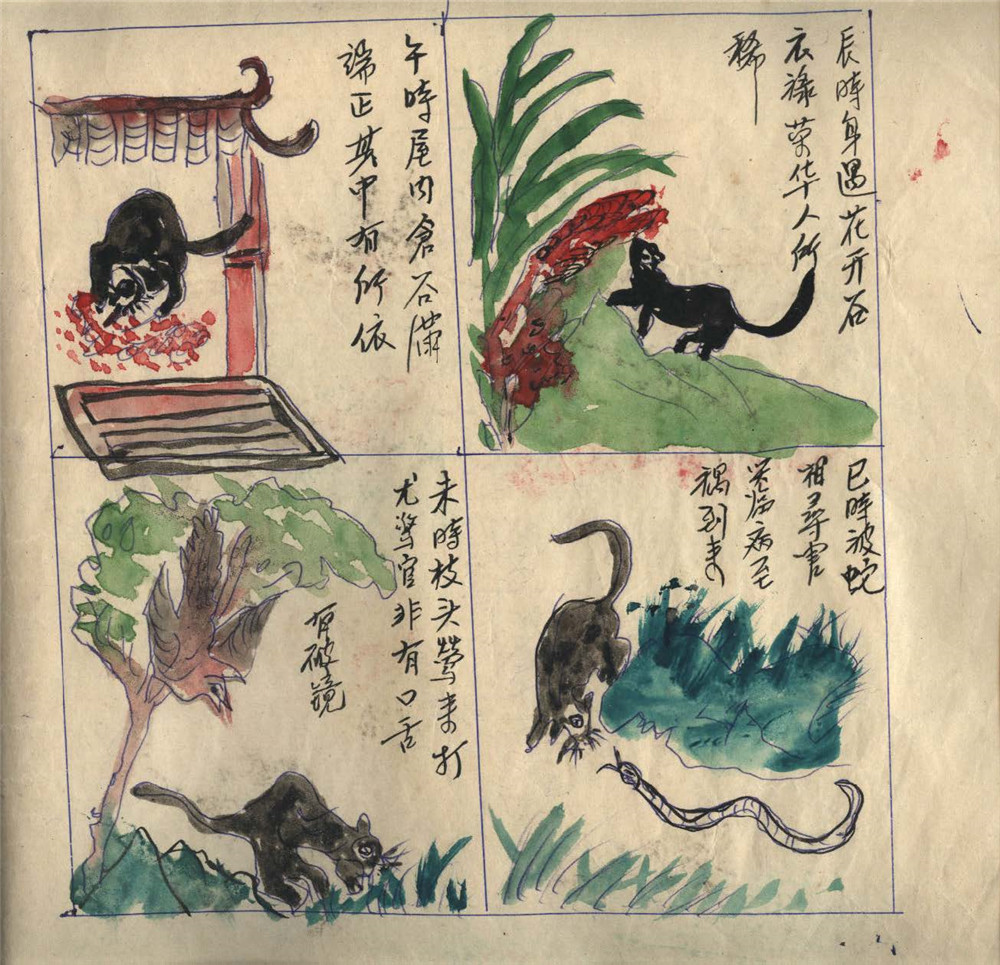 辰時身遇花开石
衣祿荣华人所
稀
巳時被蛇
相尋害
临病至
禍到来
午時屋内倉谷滿
端正其中有所依
未時枝头鶯来打
尤官非有口舌
有破鏡